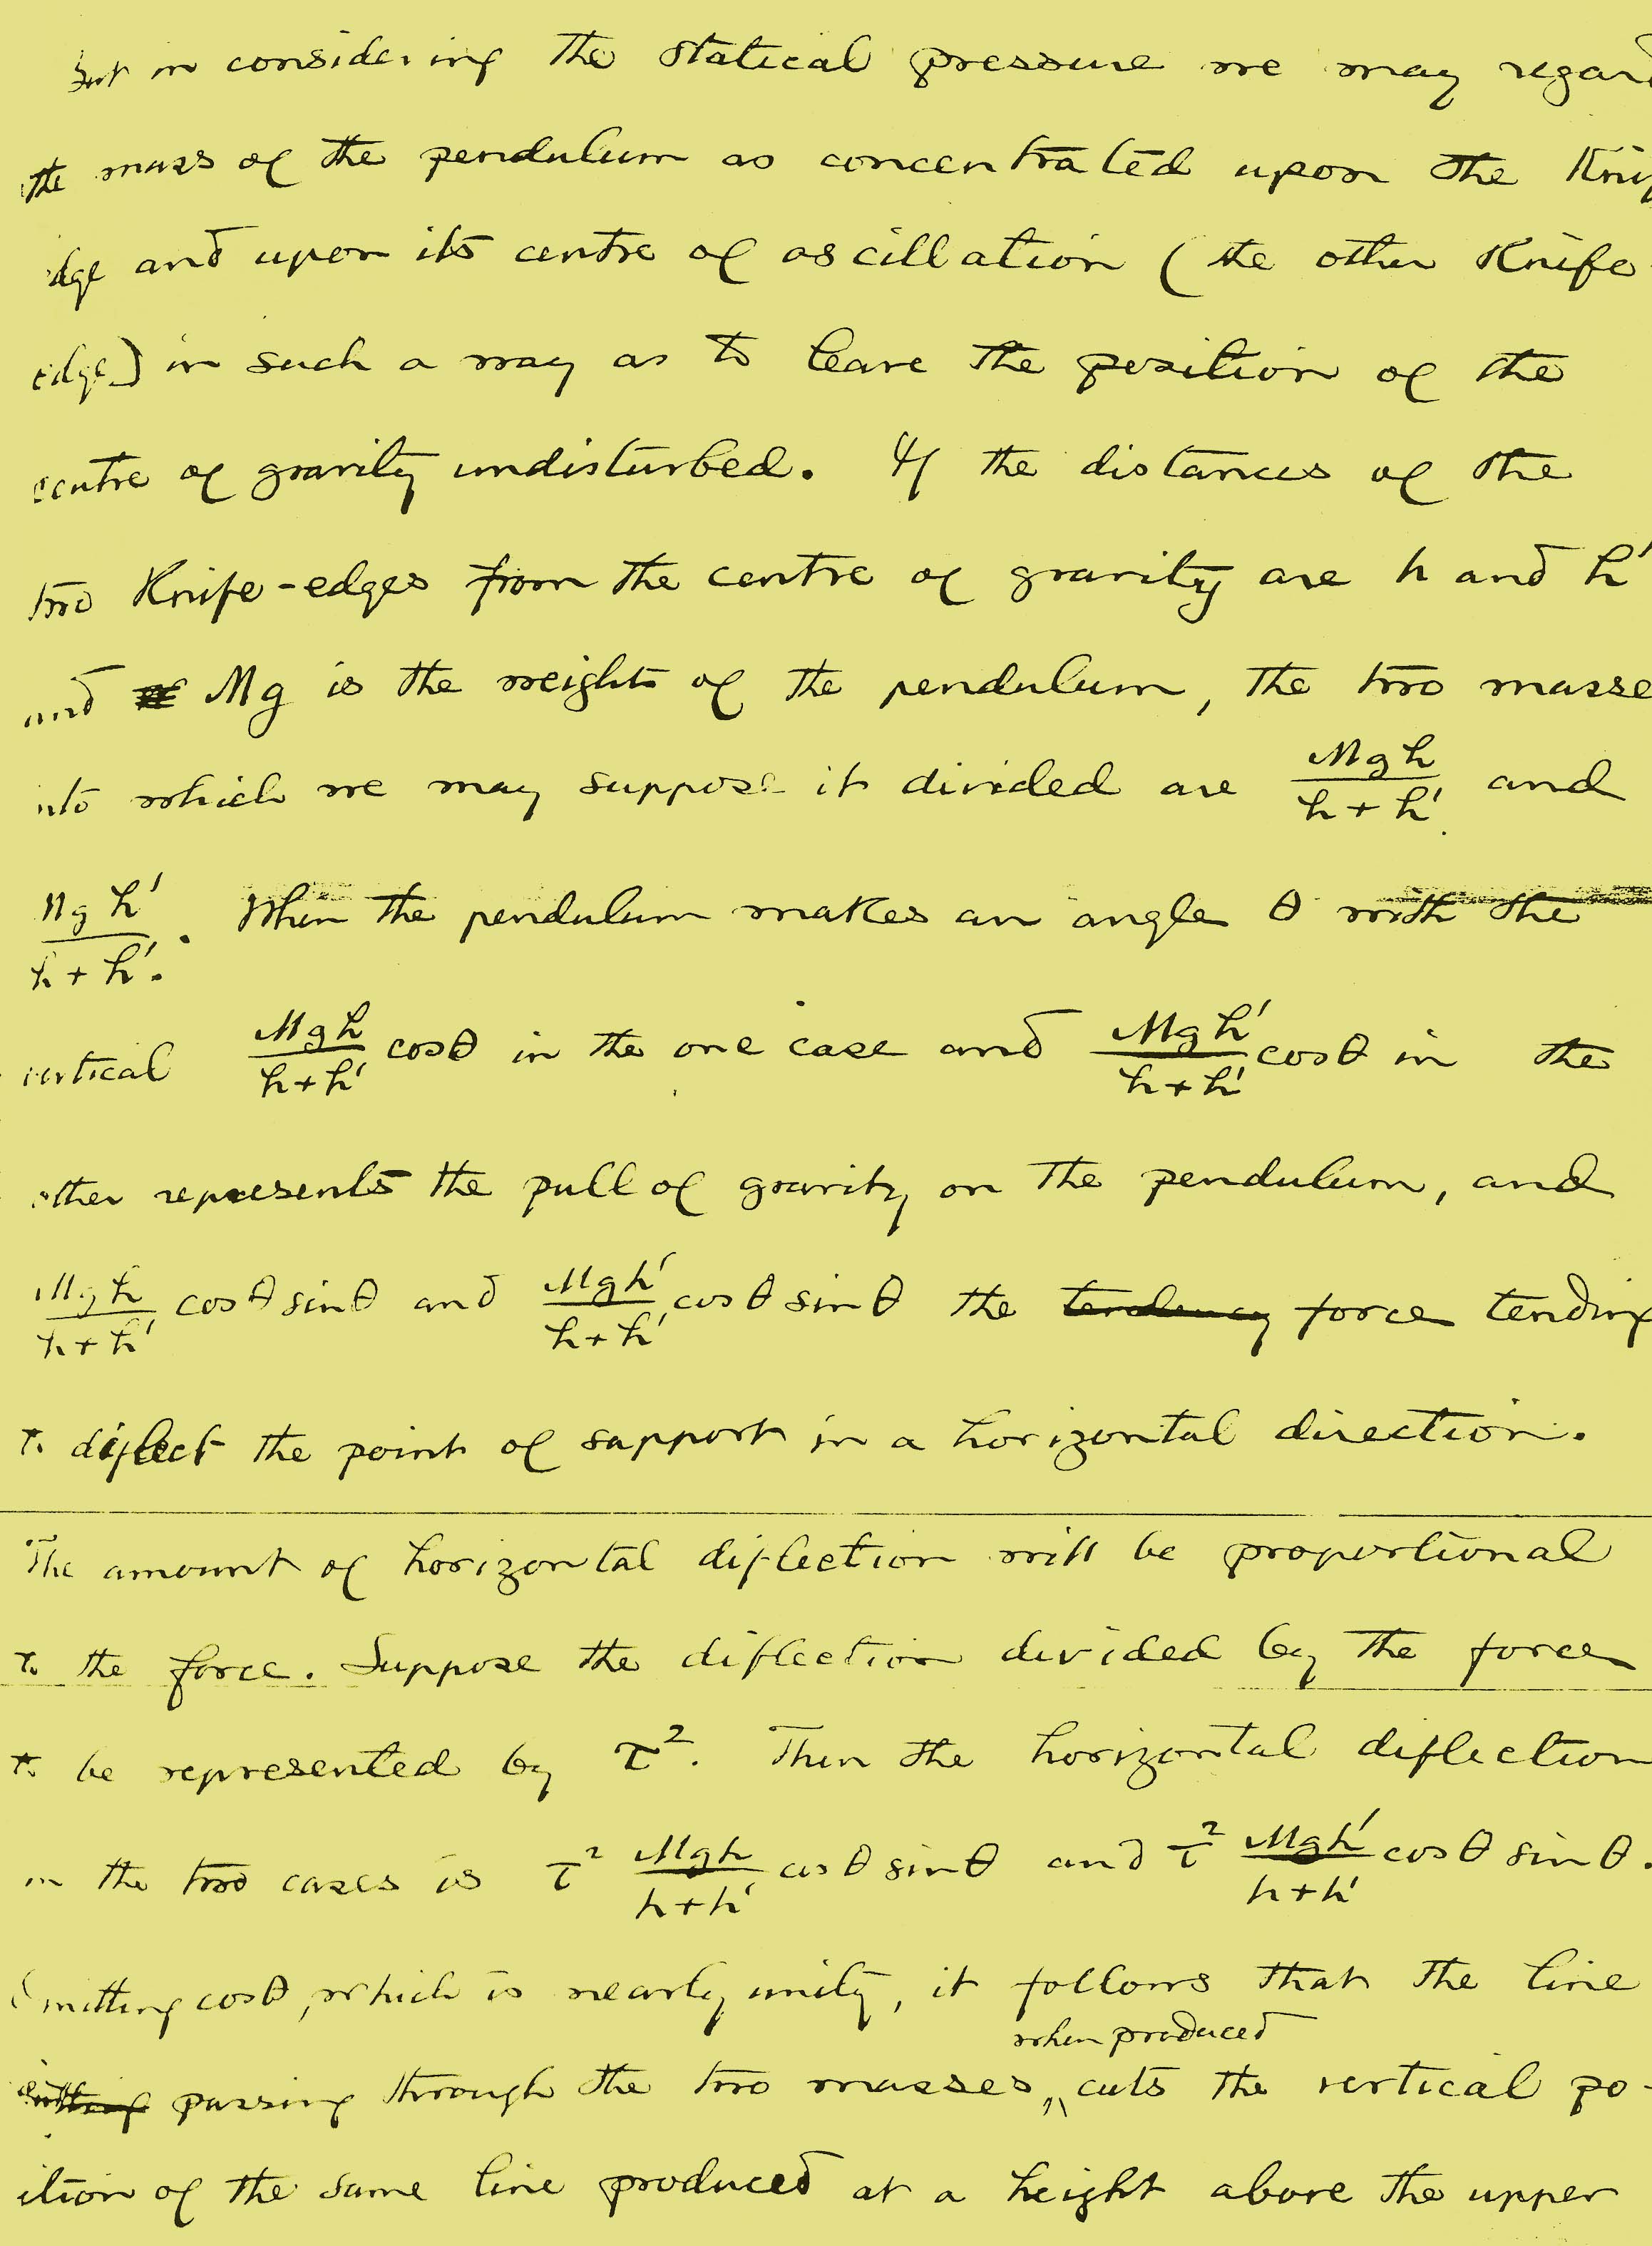 But in considering the statical pressure we may regard
the mass of the pendulum as concentrated upon the Knife
edge and upon its centre of oscillation (the other Knife
edge) in such a way as to leave the position of the
centre of gravity undisturbed. If the distances of the
two Knife-edges from the centre of gravity are h and h'
and Mg is the weight of the pendulum, the two masses
into which we may suppose it divided are Mgh/(h+h') and
Mgh'/(h+h'). When the pendulum makes an angle θ with the
vertical Mgh/(h+h') cosθ in the one case and Mgh'/(h+h') cosθ in the
other represents the pull of gravity on the pendulum, and
Mgh/(h+h') cosθ sinθ and Mgh'/(h+h') cosθ sinθ the tendency force tending
to diflect the point of support in a horizontal direction.
The amount of horizontal diflection will be proportional
to the force. Suppose the diflection divided by the force
to be represented by τ². Then the horizontal diflection
in the two cases is τ² Mgh/(h+h') cosθ sinθ and τ² Mgh'/(h+h') cosθ sinθ.
Omitting cosθ, which is nearly unity, it follows that the line
when produced
passing through the two masses, cuts the vertical po-
ition of the same line produced at a height above the upper